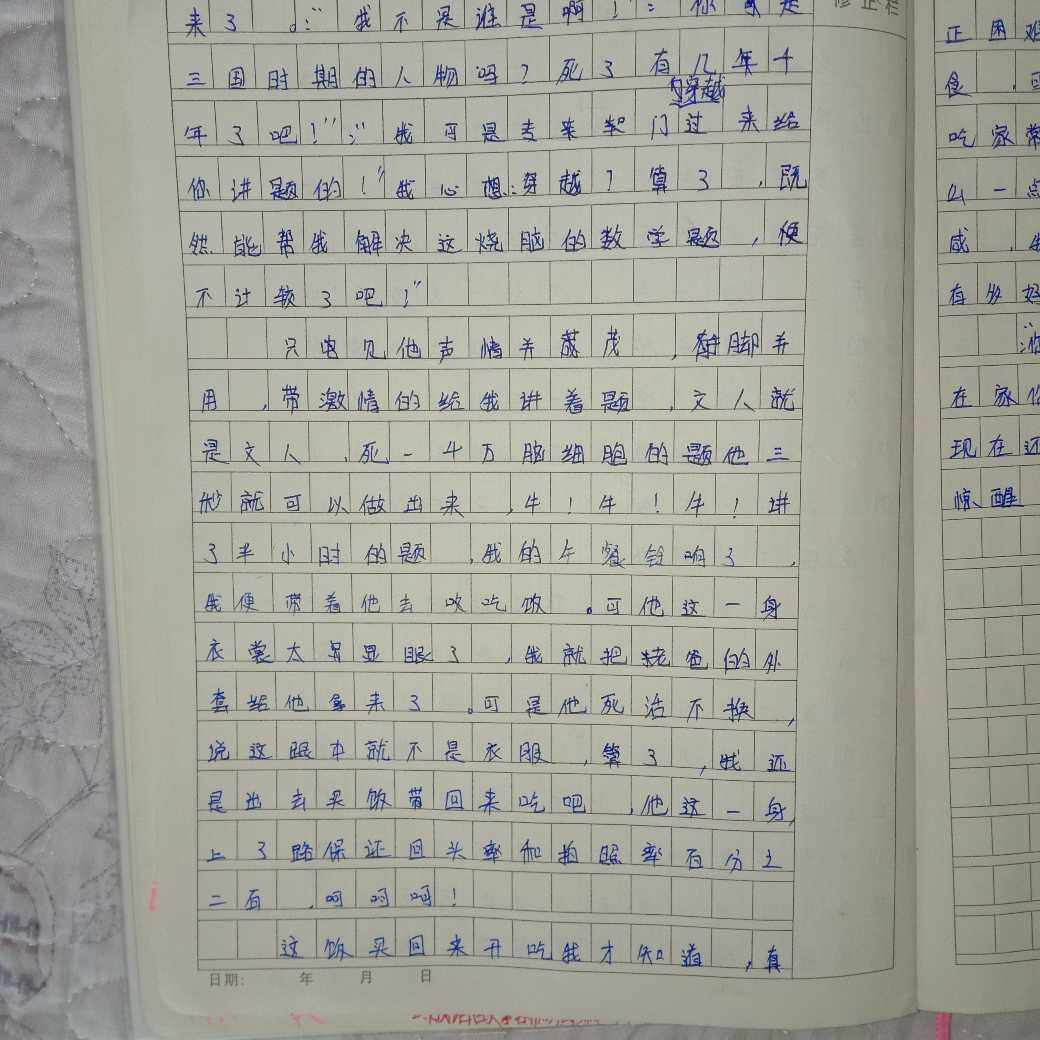 来了。:"我不是谁是啊!":你不是
修正栏
三国时期的人物吗?死了有几年千
年了吧!":"我可是专来
穿越
门过来给
你讲题的!"我心想:穿越?算了,既
然能帮我解决这烧脑的数学题,便
不计较了吧!"
只见他声情并茂,脚并
用,带激情的给我讲着题,文人就
是文人,死一4万脑细胞的题他三
秒就可以做出来,牛!牛!牛!讲
了半小时的题,我的午餐铃响了,
我便带着他去吃饭。可他这一身
衣裳太显眼了,我就把老爸的外
套给他拿来了。可是他死活不换,
说这跟本就不是衣服,算了,我还
是出去买饭带回来吃吧,他这一身,
上了路保证回头率和拍照率百分之
二百,呵呵呵!
这饭买回来开吃我才知道,真
日期: 年 月 日
正困难
食,可
吃家常
么一点
感,
有多好
在家
现在还
惊醒